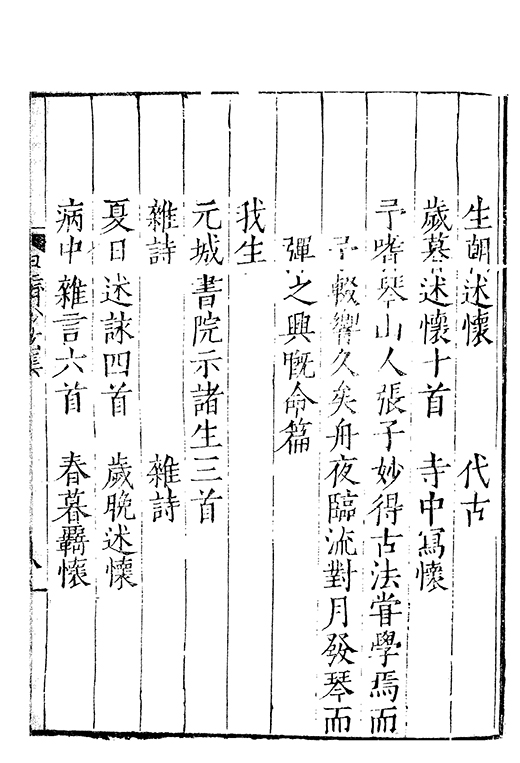 生朝述懷 代古
歲暮述懷十首 寺中寫懷
予嗜琴山人張子妙得古法甞學焉而
予輟響久矣舟夜臨流對月發琴而
彈之興慨命篇
我生
元城書院示諸生三首
雜詩 雜詩
夏日述詠四首 歲晚述懷
病中雜言六首 春暮羇懷